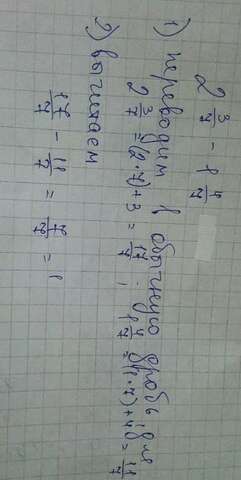 2 3/7 - 1 4/7
1) переводим в обычную дробь
2 3/7 = (2·7)+3 = 17/7 ; 1 4/7 = (1·7)+4 = 11/7
2) вычитаем
17/7 - 11/7 = 7/7 = 1